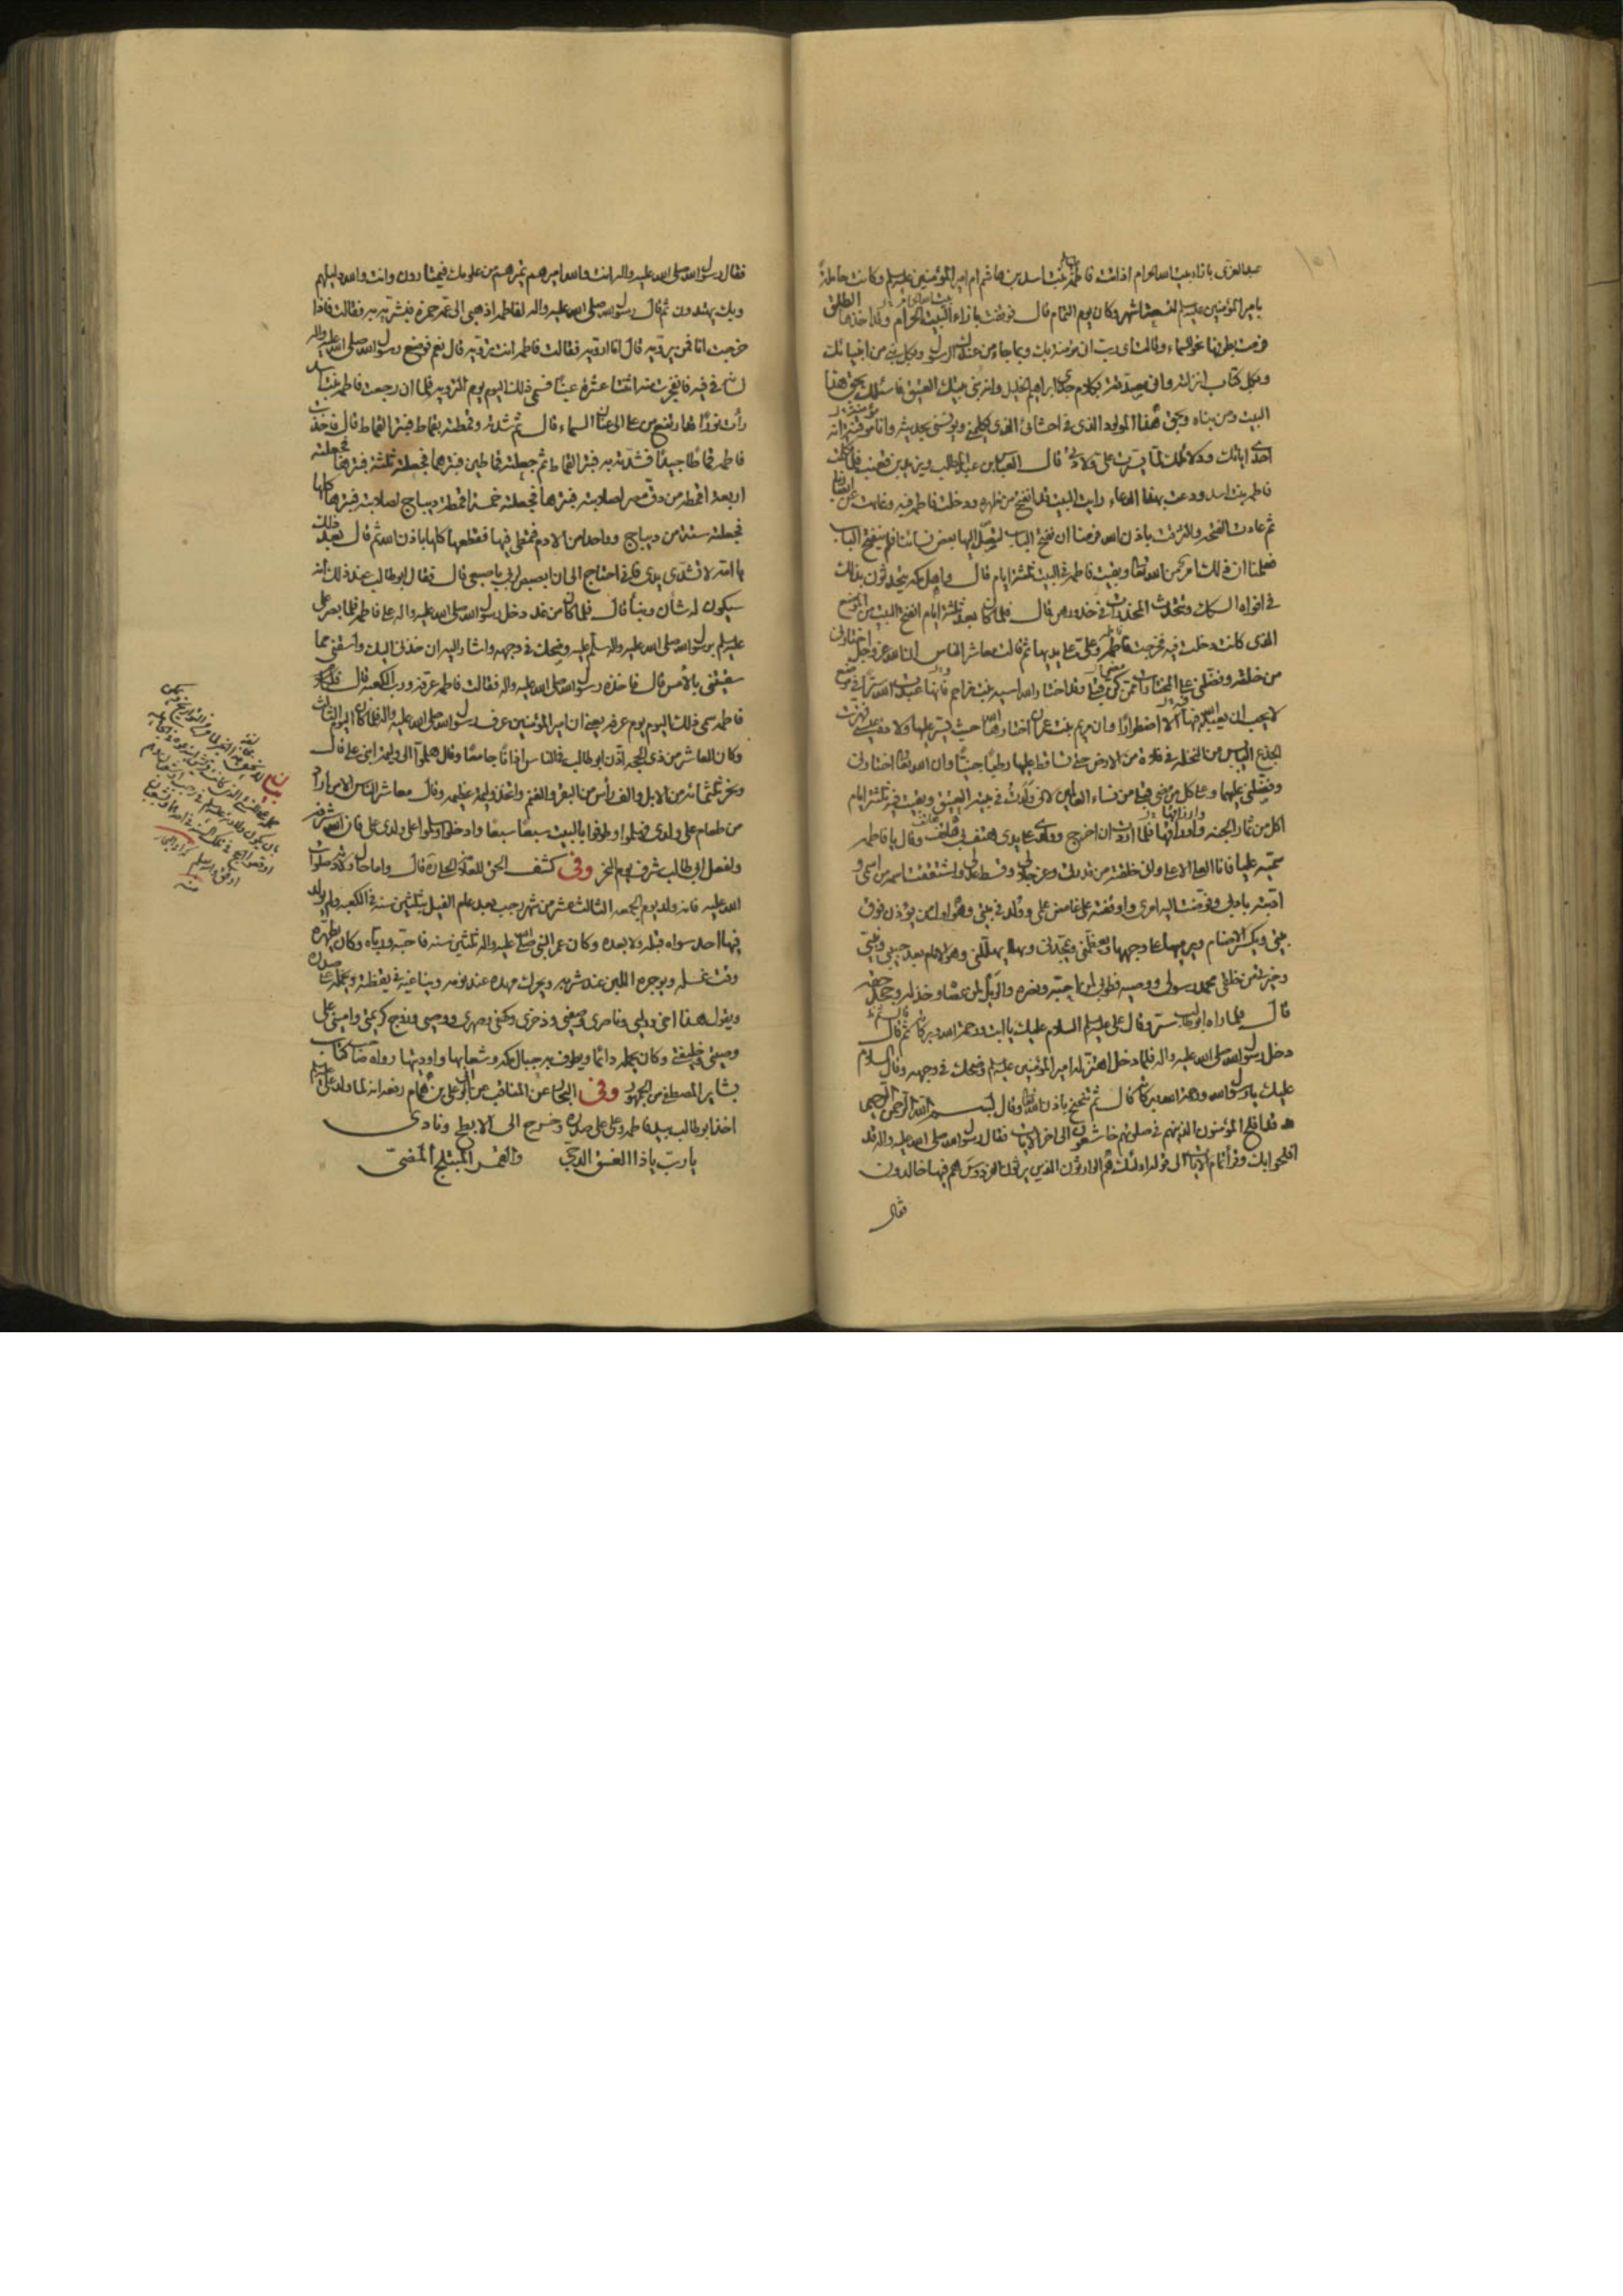 عبد العزى بازاء بيت الله الحرام اذ اتت فاطمة بنت اسد بن هاشم ام امير المؤمنين عليه السلم وكانت حاملة
بامير المؤمنين عليه السلم لتسعة اشهر وكان يوم التمام قال فوقفت بازاء البيت الحرام وقد اخذها الطلق
فرمت بطرفها نحو السماء وقالت اى رب انى مؤمنة بك وبما جاء من عندك الرسول وبكل نبى من انبيائك
وبكل كتاب انزلته وانى مصدقة بكلام جدى ابراهيم الخليل وانه بنى بيتك العتيق فاسئلك بحق هذا
البيت ومن بناه وبحق هذا المولود الذى فى احشائى الذى يكلمنى ويونسنى بحديثه وانا موقنة انه
احدى اياتك ودلائلك لما يسرت على ولادتى قال العباس بن عبد المطلب ويزيد بن قعنب فلما تكلمت
فاطمة بنت اسد ودعت بهذا الدعاء رايت البيت قد انفتح من ظهره ودخلت فاطمة فيه وغابت عن ابصارنا
ثم عادت الفتحة والتزقت باذن الله فرمنا ان نفتح الباب ليصل اليها بعض نسائنا فلم ينفتح الباب
فعلمنا ان ذلك امر من الله تعالى وبقيت فاطمة فى البيت ثلثة ايام قال واهل مكة يتحدثون بذلك
فى افواه السكك وتتحدث المخدرات فى خدورهن قال فلما كان بعد ثلثة ايام انفتح البيت من الموضع
الذى كانت دخلت فيه فخرجت فاطمة وعلى على يديها ثم قالت معاشر الناس ان الله عز وجل اختارنى
من خلقه وفضلنى على المختارات ممن كن قبلى وقد اختار الله اسية بنت مزاحم فانها عبدت الله سرا فى موضع
لا يحب ان يعبد الله فيها الا اضطرارا وان مريم بنت عمران اختارها الله حيث يسر عليها ولادة عيسى فهزت
الجذع اليابس من النخلة فى فلاة من الارض حتى تساقط عليها رطبا جنيا وان الله تعالى اختارنى
وفضلنى عليهما وعلى كل من مضى قبلى من نساء العالمين لانى ولدت فى بيته العتيق وبقيت فيه ثلثة ايام
اكل من ثمار الجنة وارزاقها فلما اردت ان اخرج وولدى على يدى هتف بى هاتف وقال يا فاطمة
سميه عليا فانا العلى الاعلى وانى خلقته من قدرتى وعز جلالى وقسط عدلى واشتققت اسمه من اسمى و
ادبته بادبى وفوضت اليه امرى واوقفته على غامض علمى وولد فى بيتى وهو اول من يؤذن فوق
بيتى ويكسر الاصنام ويرميها على وجهها ويعظمنى ويمجدنى ويهللنى وهو الامام بعد حبيبى ونبيى
وخيرتى من خلقى محمد رسولى ووصيه فطوبى لمن احبه ونصره والويل لمن عصاه وخذله وجحد حقه
قال فلما راه ابو طالب سر وقال على عليه السلم السلام عليك يا ابت ورحمة الله وبركاته ثم قال
دخل رسول الله صلى الله عليه واله فلما دخل اهتز له امير المؤمنين عليه السلم وضحك فى وجهه وقال السلام
عليك يا رسول الله ورحمة الله وبركاته قال ثم تنحنح باذن الله تعالى وقال بسم الله الرحمن الرحيم
قد افلح المؤمنون الذين هم فى صلوتهم خاشعون الى اخر الايات فقال رسول الله صلى الله عليه واله قد
افلحوا بك وقرأ تمام الايات الى قوله اولئك هم الوارثون الذين يرثون الفردوس هم فيها خالدون
فقال
فقال رسول الله صلى الله عليه واله انت والله اميرهم تميرهم من علومك فيمتارون وانت والله دليلهم
وبك يهتدون ثم قال رسول الله صلى الله عليه واله لفاطمة اذهبى الى عمه حمزة فبشريه به فقالت فاذا
خرجت انا فمن يرويه قال انا ارويه فقالت فاطمة انت ترويه قال نعم فوضع رسول الله صلى الله عليه واله
لسانه فى فيه فانفجرت منه اثنتا عشرة عينا فسمى ذلك اليوم يوم التروية فلما ان رجعت فاطمة بنت اسد
رأت نورا قد ارتفع من على الى عنان السماء قال ثم شدته وقمطته بقماط فبتر القماط قال فاخذت
فاطمة قماطا جيدا فشدته به فبتر القماط ثم جعلته قماطين فبترهما فجعلته ثلثة فبترها فجعلته
اربعة اقمطة من رق مصر لصلابته فبترها فجعلته خمسة اقمطة ديباج لصلابته فبترها كلها
فجعلته ستة من ديباج وواحدا من الادم فتمطى فيها فقطعها كلها باذن الله ثم قال بعد ذلك
يا امه لا تشدى يدى فانى احتاج الى ان ابصبص لربى باصبعى قال فقال ابو طالب عند ذلك انه
سيكون له شأن ونبأ قال فلما كان من غد دخل رسول الله صلى الله عليه واله على فاطمة فلما بصر على
عليه السلم برسول الله صلى الله عليه واله سلم عليه وضحك فى وجهه واشار اليه ان خذنى اليك واسقنى مما
سقيتنى بالامس قال فاخذه رسول الله صلى الله عليه واله فقالت فاطمة عرفه ورب الكعبة قال فلكلام
فاطمة سمى ذلك اليوم يوم عرفة يعنى ان امير المؤمنين عرف رسول الله صلى الله عليه واله فلما كان اليوم الثالث
وكان العاشر من ذى الحجة اذن ابو طالب فى الناس اذانا جامعا وقال هلموا الى وليمة ابنى على قال
ونحر ثلثمائة من الابل والف رأس من البقر والغنم واتخذ وليمة عظيمة وقال معاشر الناس الا من اراد
من طعام على ولدى فهلموا وطوفوا بالبيت سبعا سبعا وادخلوا وسلموا على ولدى على فان الله شرفه
ولفعل ابى طالب شرف يوم النحر وفى كشف الحق للعلامة الحلى ره قال واما حال ولادته صلوات
الله عليه فانه ولد يوم الجمعة الثالث عشر من شهر رجب بعد عام الفيل بثلثين سنة فى الكعبة ولم يولد
فيها احد سواه قبله ولا بعده وكان عمر النبى صلى الله عليه واله ثلثين سنة فاحبه ورباه وكان يطهره
وقت غسله ويوجره اللبن عند شربه ويحرك مهده عند نومه ويناغيه فى يقظته ويحمله على صدره
ويقول هذا اخى ووليى وناصرى وصفيى وذخرى وكهفى وصهرى ووصيى وزوج كريمتى وامينى على
وصيتى وخليفتى وكان يحمله دائما ويطوف به جبال مكة وشعابها واوديتها رواه صاحب كتاب
بشاير المصطفى من الجمهور وفى البحار عن المناقب عن ابى على بن همام رفعه انه لما ولد على عليه السلم
اخذ ابو طالب بيد فاطمة وعلى على صدره وخرج الى الابطح ونادى
يا رب يا ذا الغسق الدجى والقمر المبتلج المضى
بيان